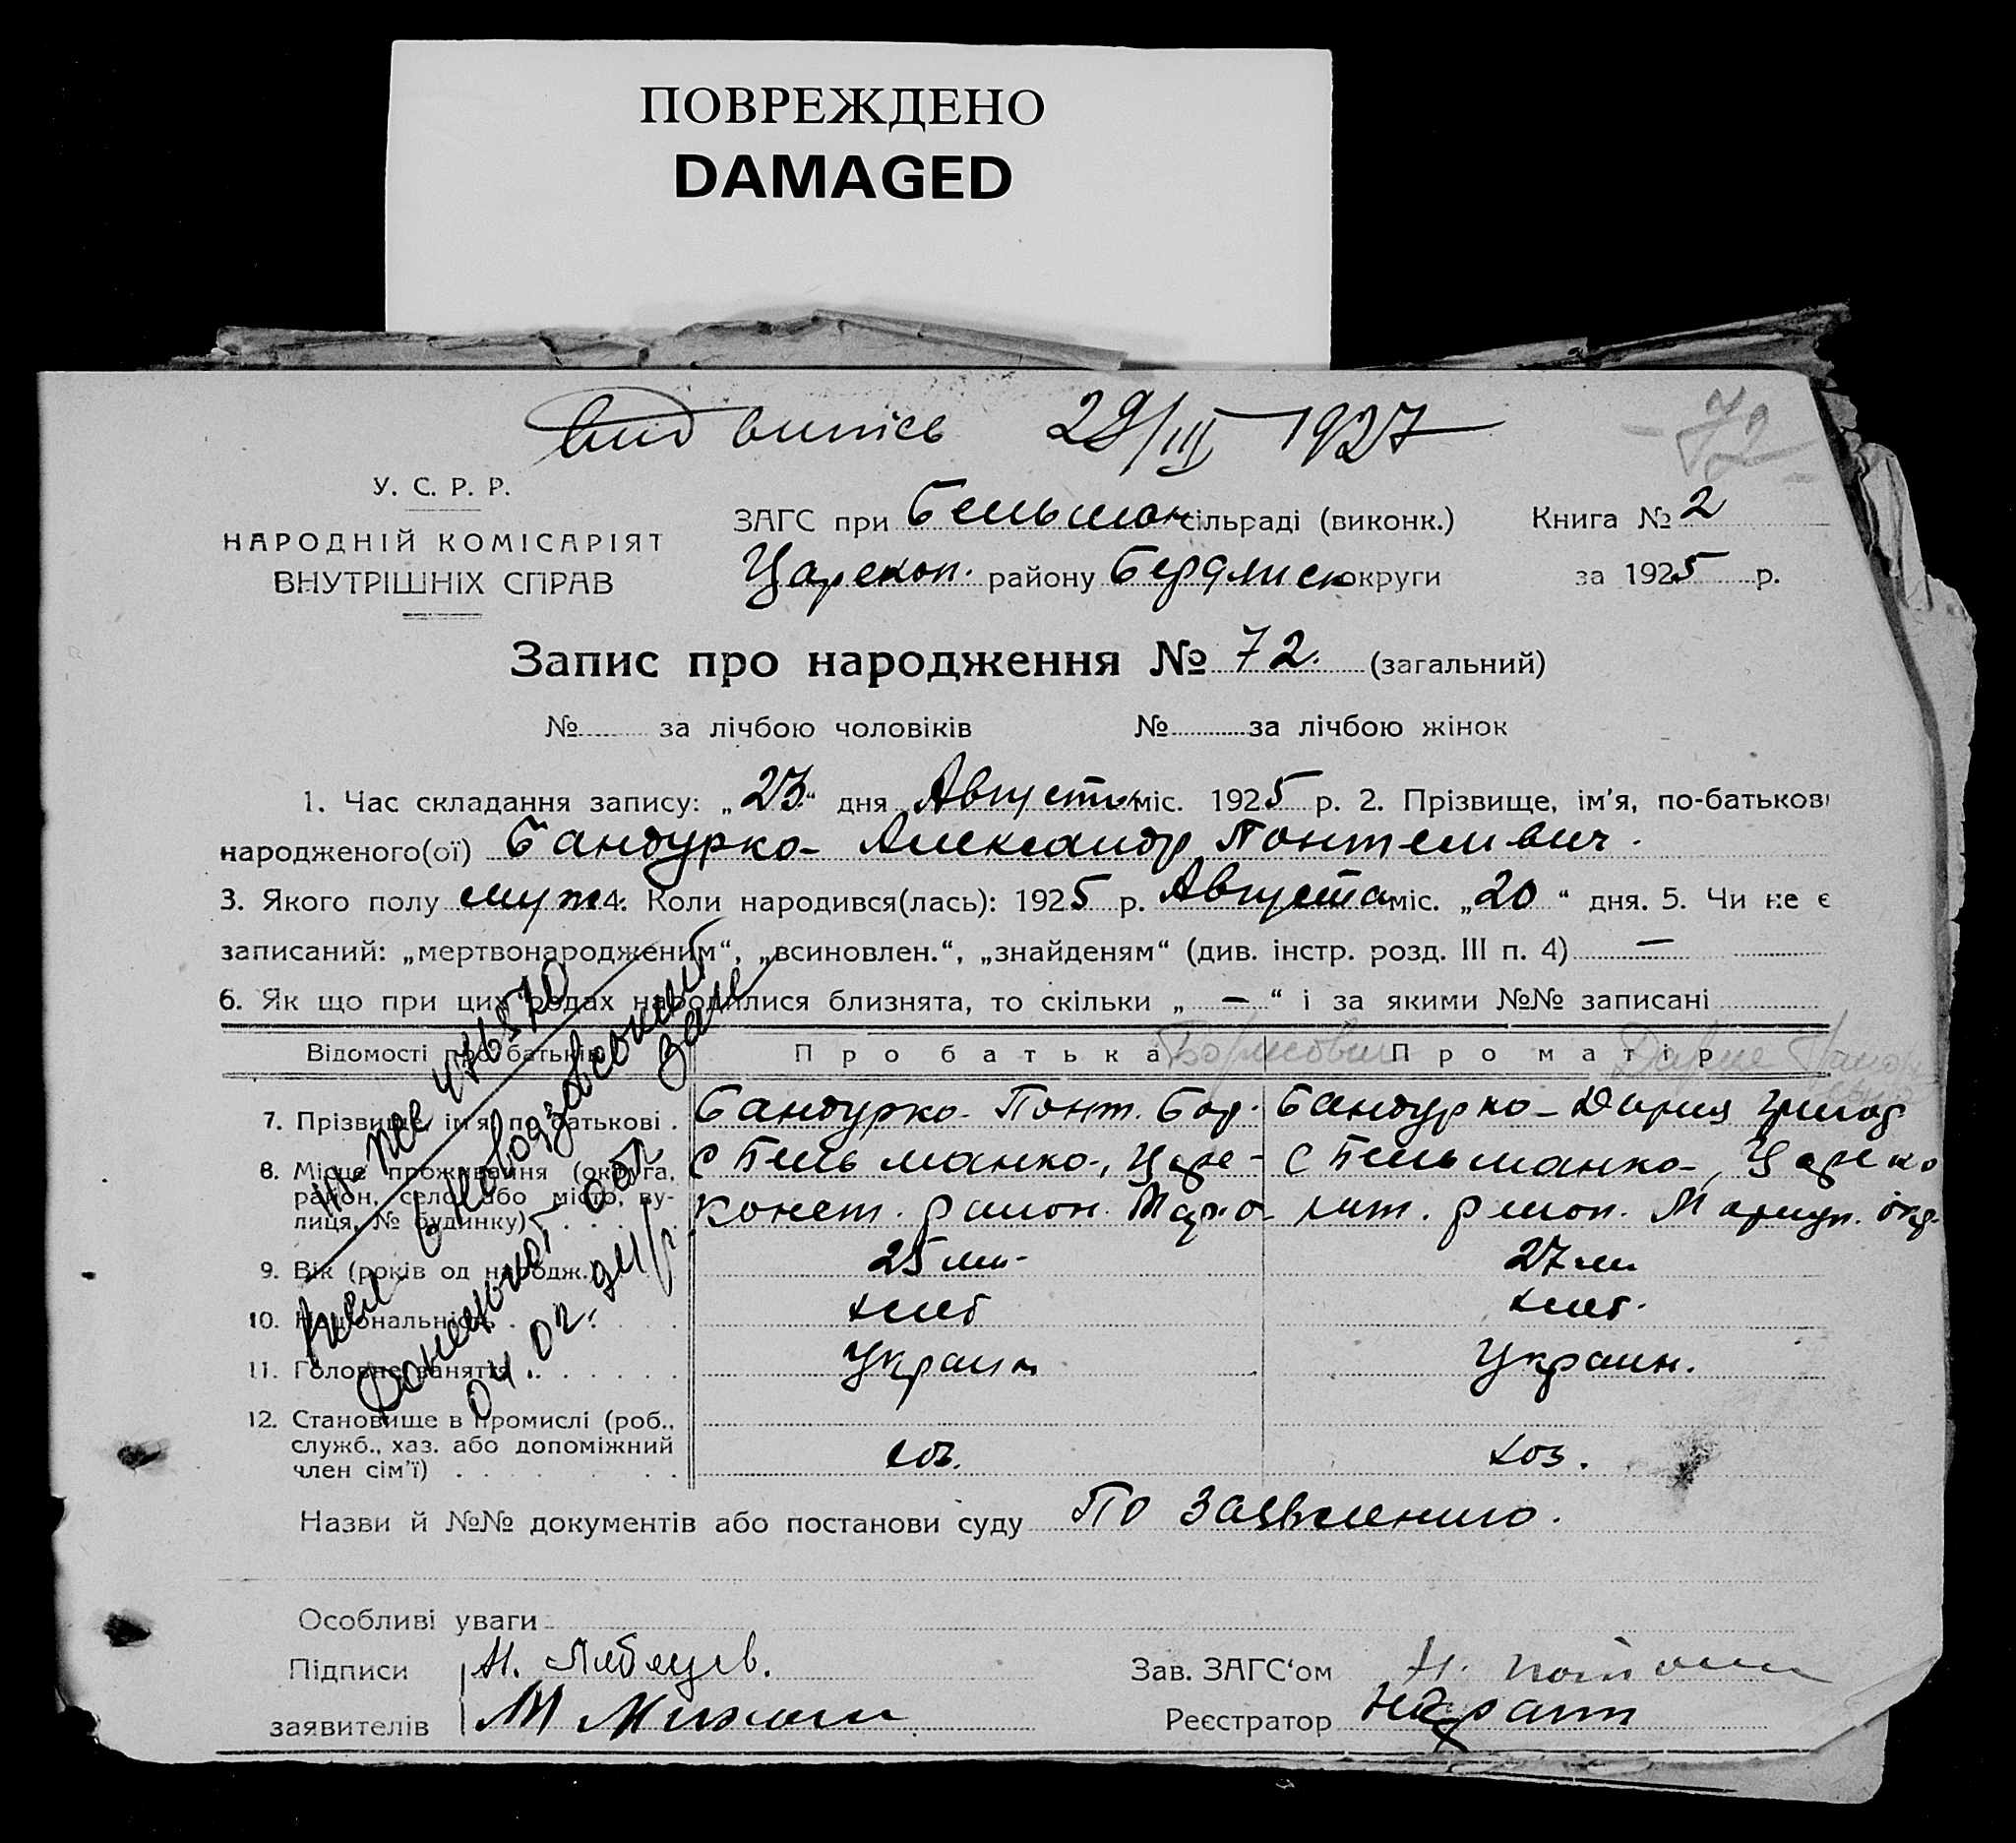 ПОВРЕЖДЕНО
DAMAGED
вид випісь 29/III 1927
72
У. С. Р. Р.
НАРОДНІЙ КОМІСАРІЯТ
ВНУТРІШНІХ СПРАВ
ЗАГС при Бельман сільраді (виконк.) Книга № 2
Царекон. району Бердянск округи за 1925 р.
Запис про народження № 72. (загальний)
№ за лічбою чоловіків № за лічбою жінок
1. Час складання запису: „23“ дня Августа міс. 1925 р. 2. Прізвище, ім’я, по-батькові
народженого(ої) Бандурко Александр Пантелевич.
3. Якого полу муж 4. Коли народився(лась): 1925 р. Августа міс. „20“ дня. 5. Чи не є
записаний: „мертвонародженим“, „всиновлен.“, „знайденям“ (див. інстр. розд. III п. 4) —
6. Як що при цих родах народилися близнята, то скільки „ — “ і за якими №№ записані
Відомості про батьків Про батька Борисович Про матір
7. Прізвище, ім’я, по батькові . Бандурко Пант. Бор. Бандурко Дария Григор
8. Місце проживання (округа, с Бельманка, Царе- с Бельманка, Царско
район, село або місто, ву-
лиця, № будинку) конст. район. Марио- нст. район. Мариуп. окр.
9. Вік (років од народж.) 25 лет 27 лет
10. Національність . хлеб хлеб.
11. Головне заняття . Украин Украин.
12. Становище в промислі (роб.,
служб., хаз. або допоміжний
член сім’ї) хоз. хоз.
476570
Донецкой обл
Назви й №№ документів або постанови суду По заявлению.
Особливі уваги
Підписи Зав. ЗАГС‘ом
заявителів Реєстратор